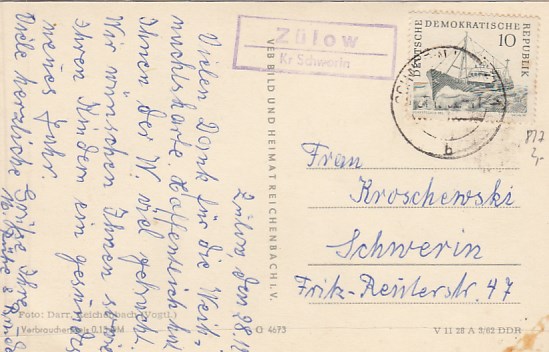 Zülow
Kr Schwerin
DEUTSCHE DEMOKRATISCHE REPUBLIK
10
b
Zülow, den 28.12
Vielen Dank für die Weih-
nachtskarte. Hoffentlich hat
Ihnen der W. viel gebracht.
Wir wünschen Ihnen sowie
Ihren Kindern ein gesundes
neues Jahr.
Viele herzliche Grüße Ihre
VEB BILD UND HEIMAT REICHENBACH I. V.
Frau
Kroschewski
Schwerin
Fritz-Reuterstr. 47
Foto: Darr, Reichenbach (Vogtl.)
Verbraucherpreis 0,15 DM
G 4673
V 11 28 A 3/62 DDR